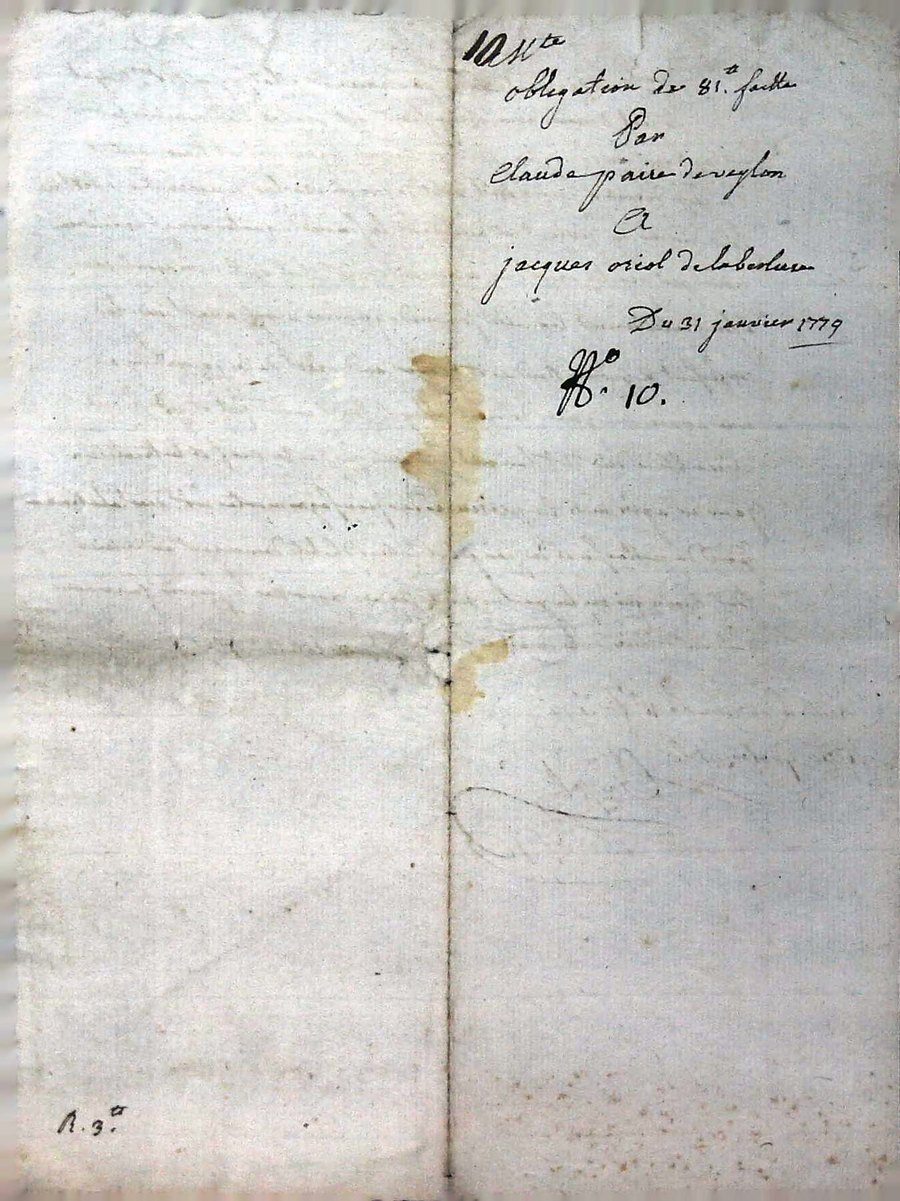 10 Nte
obligation de 81.tt faitte
Par
Claude paire de veylon
A
jacques oriol de laberlure
Du 31 janvier 1779
No. 10.
R. 3.tt